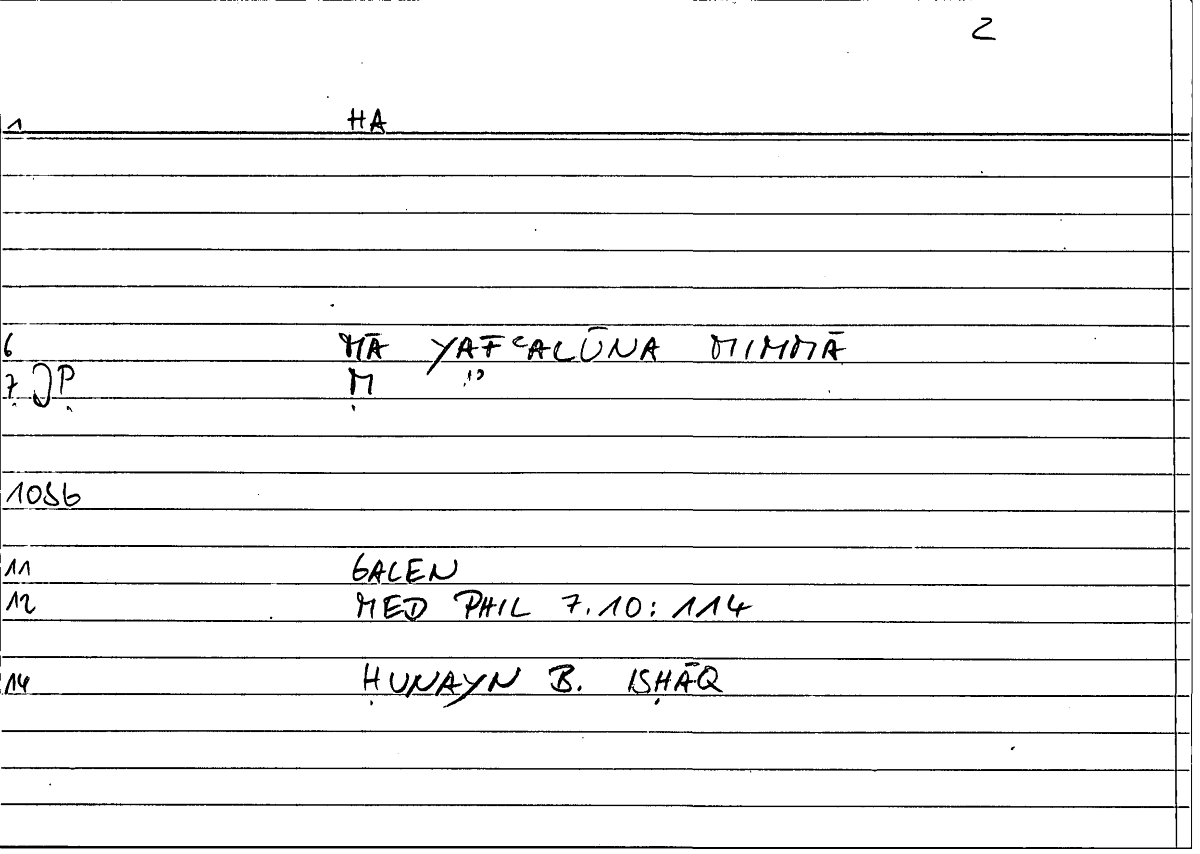 2
1 HA
6 MĀ YAFʿALŪNA MIMMĀ
7 JP M
10Sb
11 GALEN
12 MED PHIL 7.10: 114
14 ḤUNAYN B. ISḤĀQ